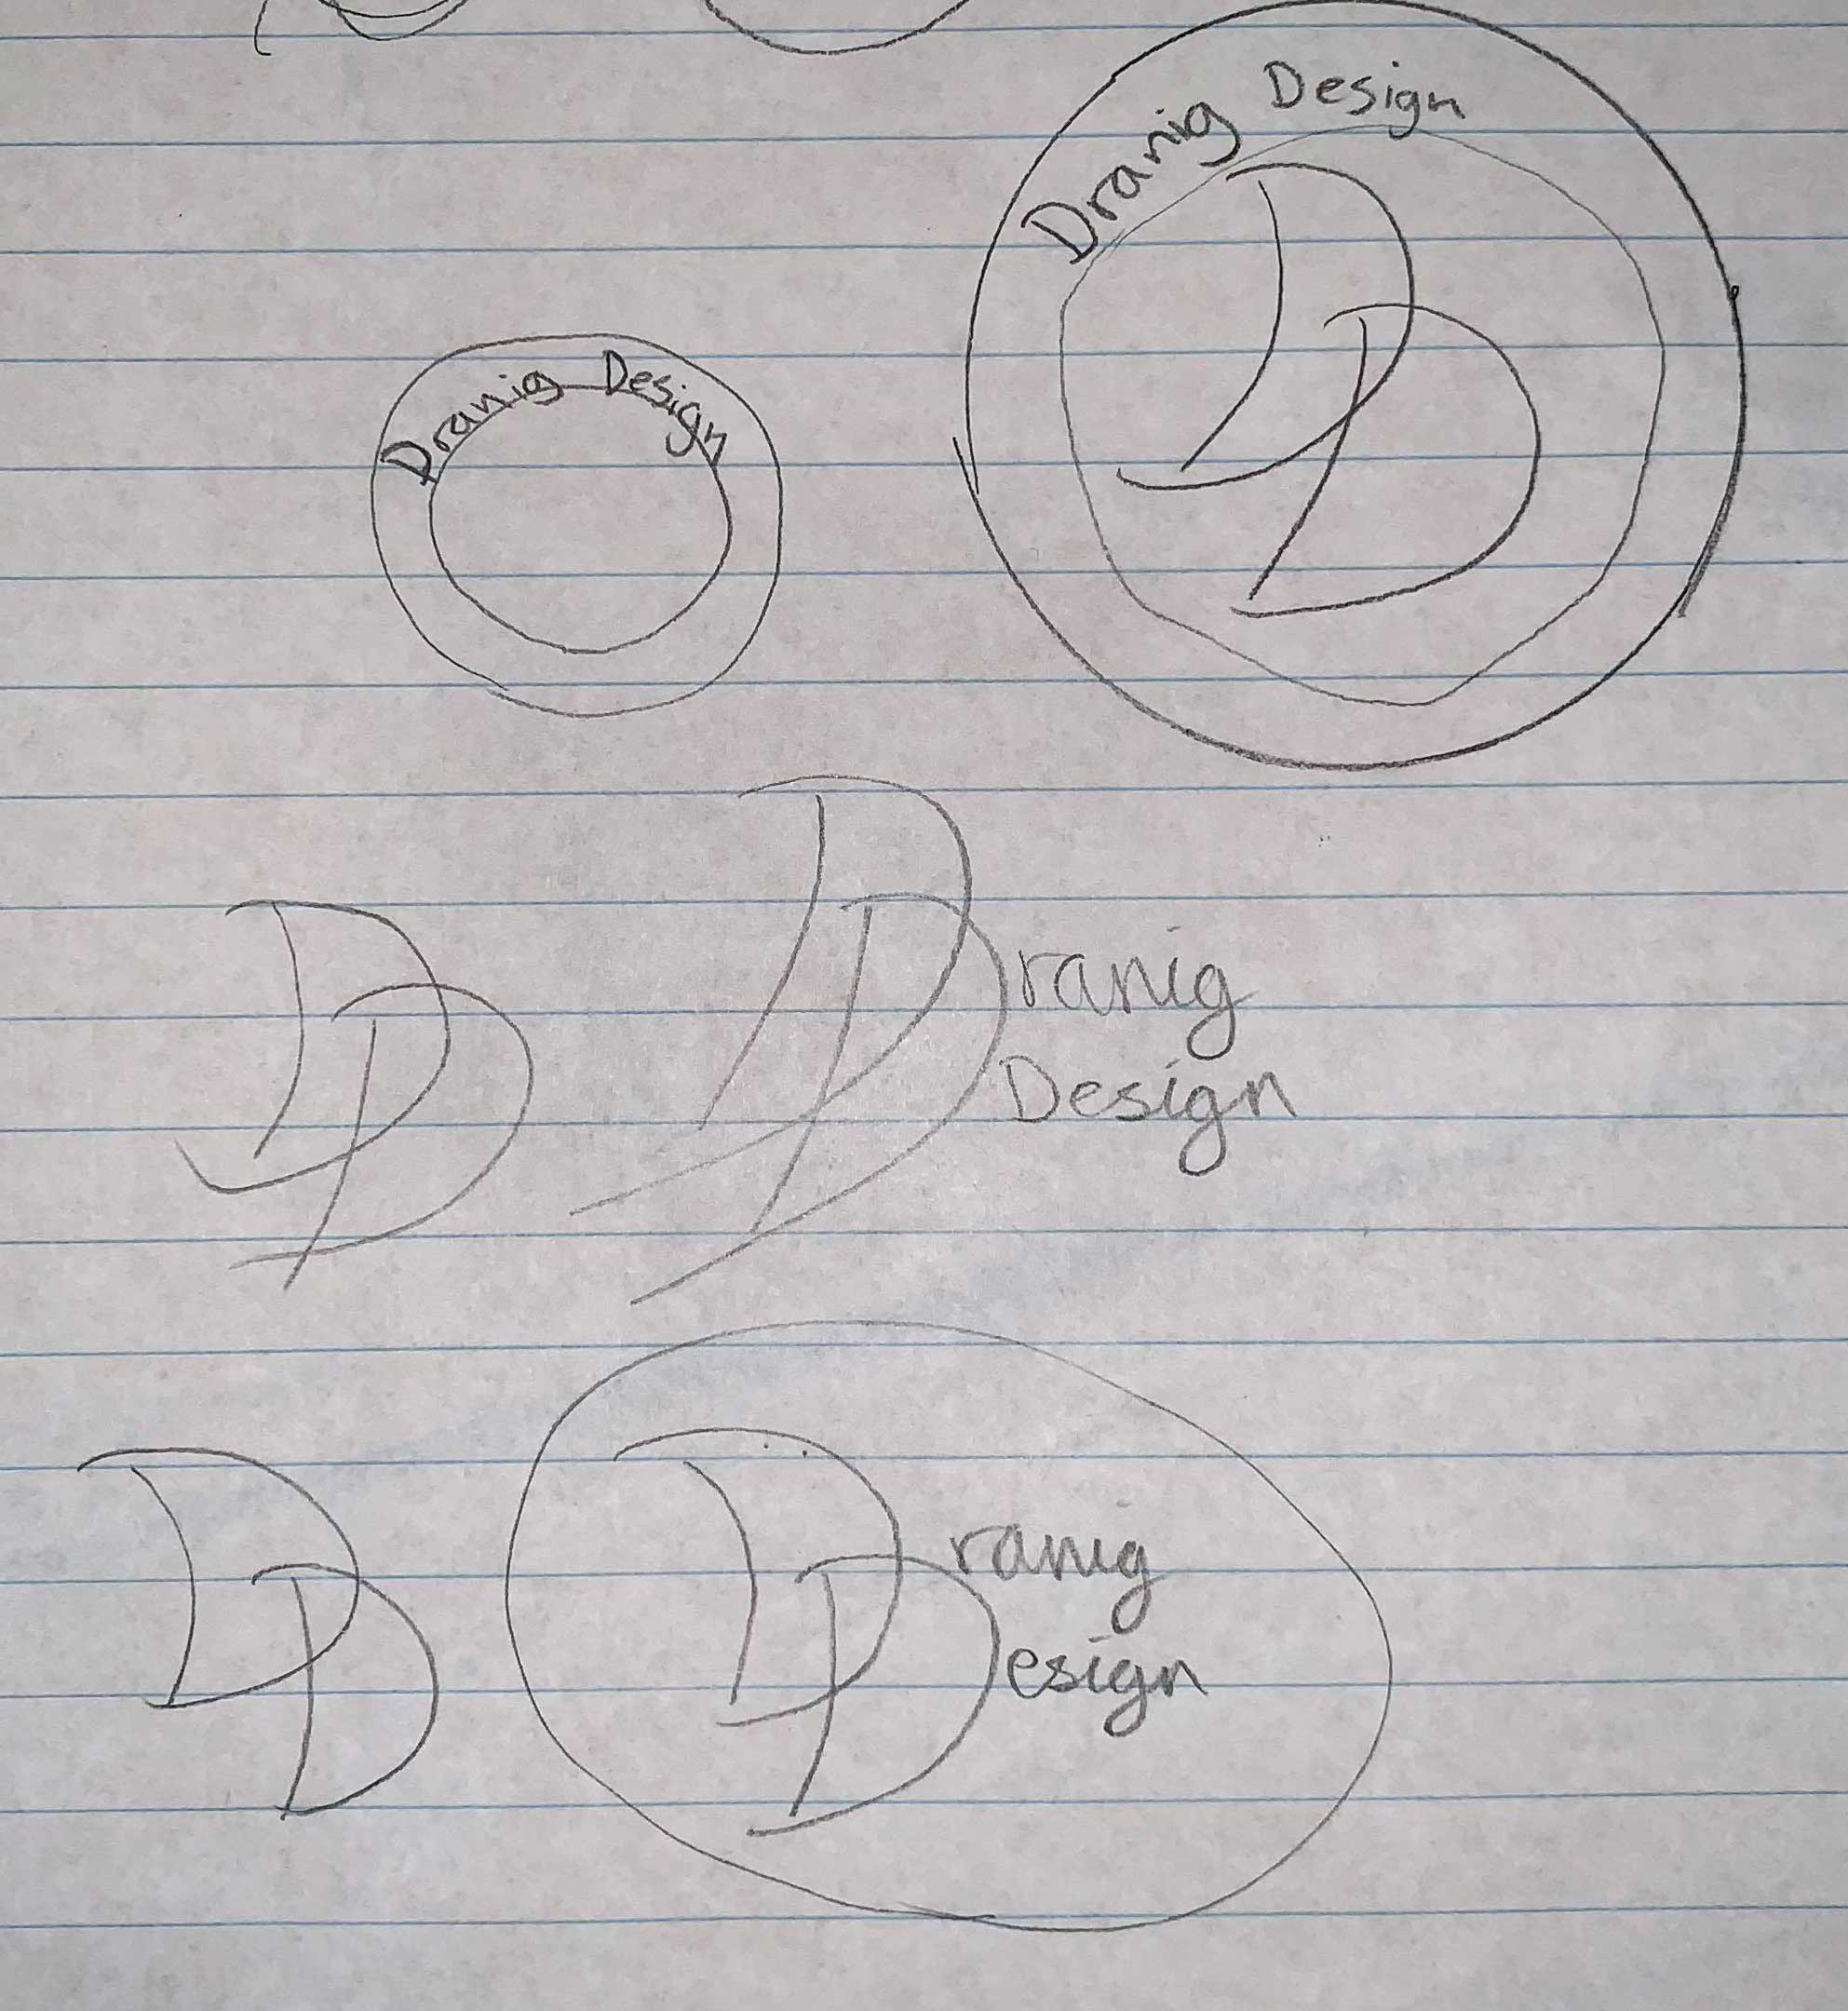 Dranig Design
Dranig Design
DD
DD
DDranig
Design
DD
Dranig
Design